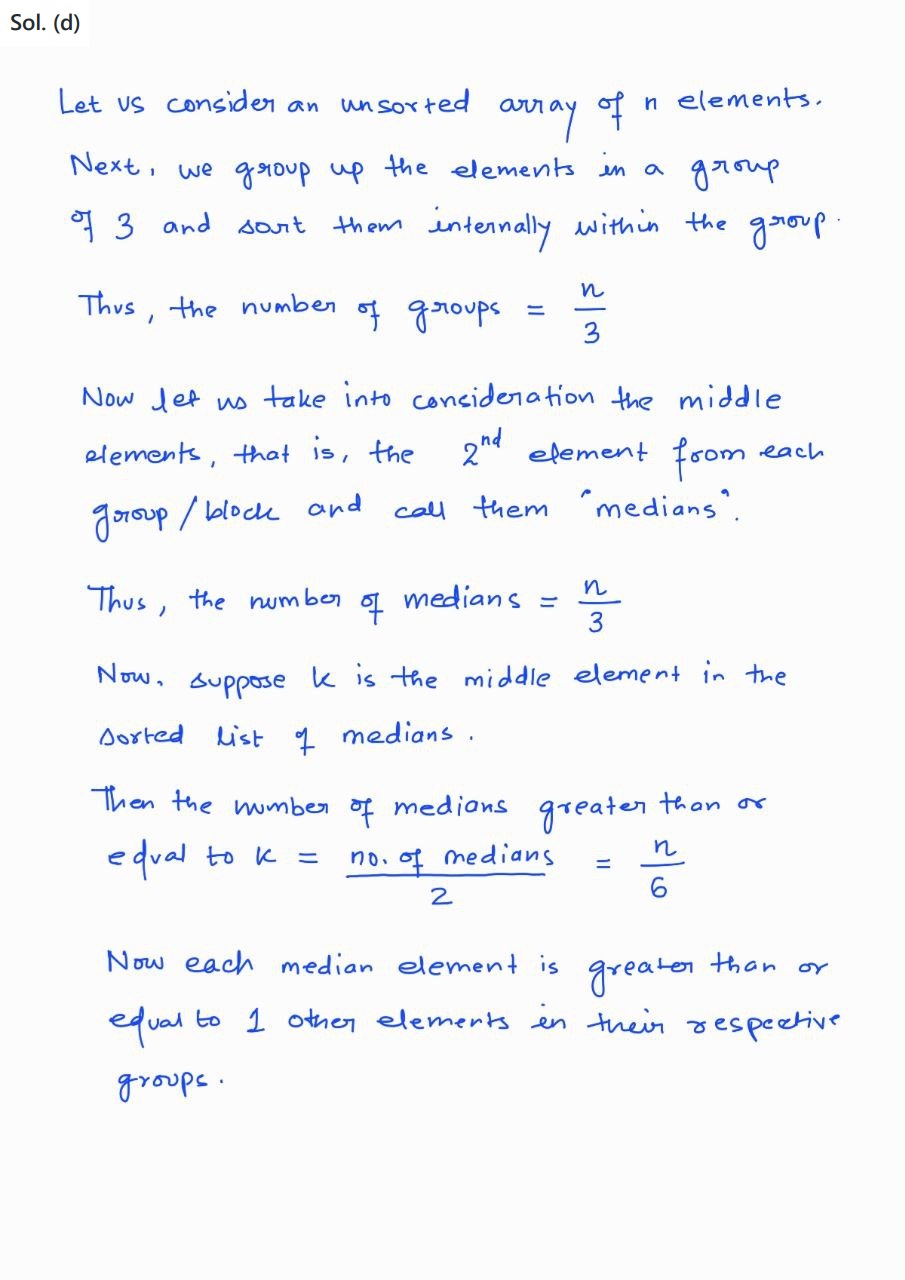 Sol. (d)
Let us consider an unsorted array of n elements.
Next, we group up the elements in a group
of 3 and sort them internally within the group.
Thus, the number of groups = n/3
Now let us take into consideration the middle
elements, that is, the 2nd element from each
group / block and call them "medians".
Thus, the number of medians = n/3
Now, suppose k is the middle element in the
sorted list of medians.
Then the number of medians greater than or
equal to k = no. of medians/2 = n/6
Now each median element is greater than or
equal to 1 other elements in their respective
groups.